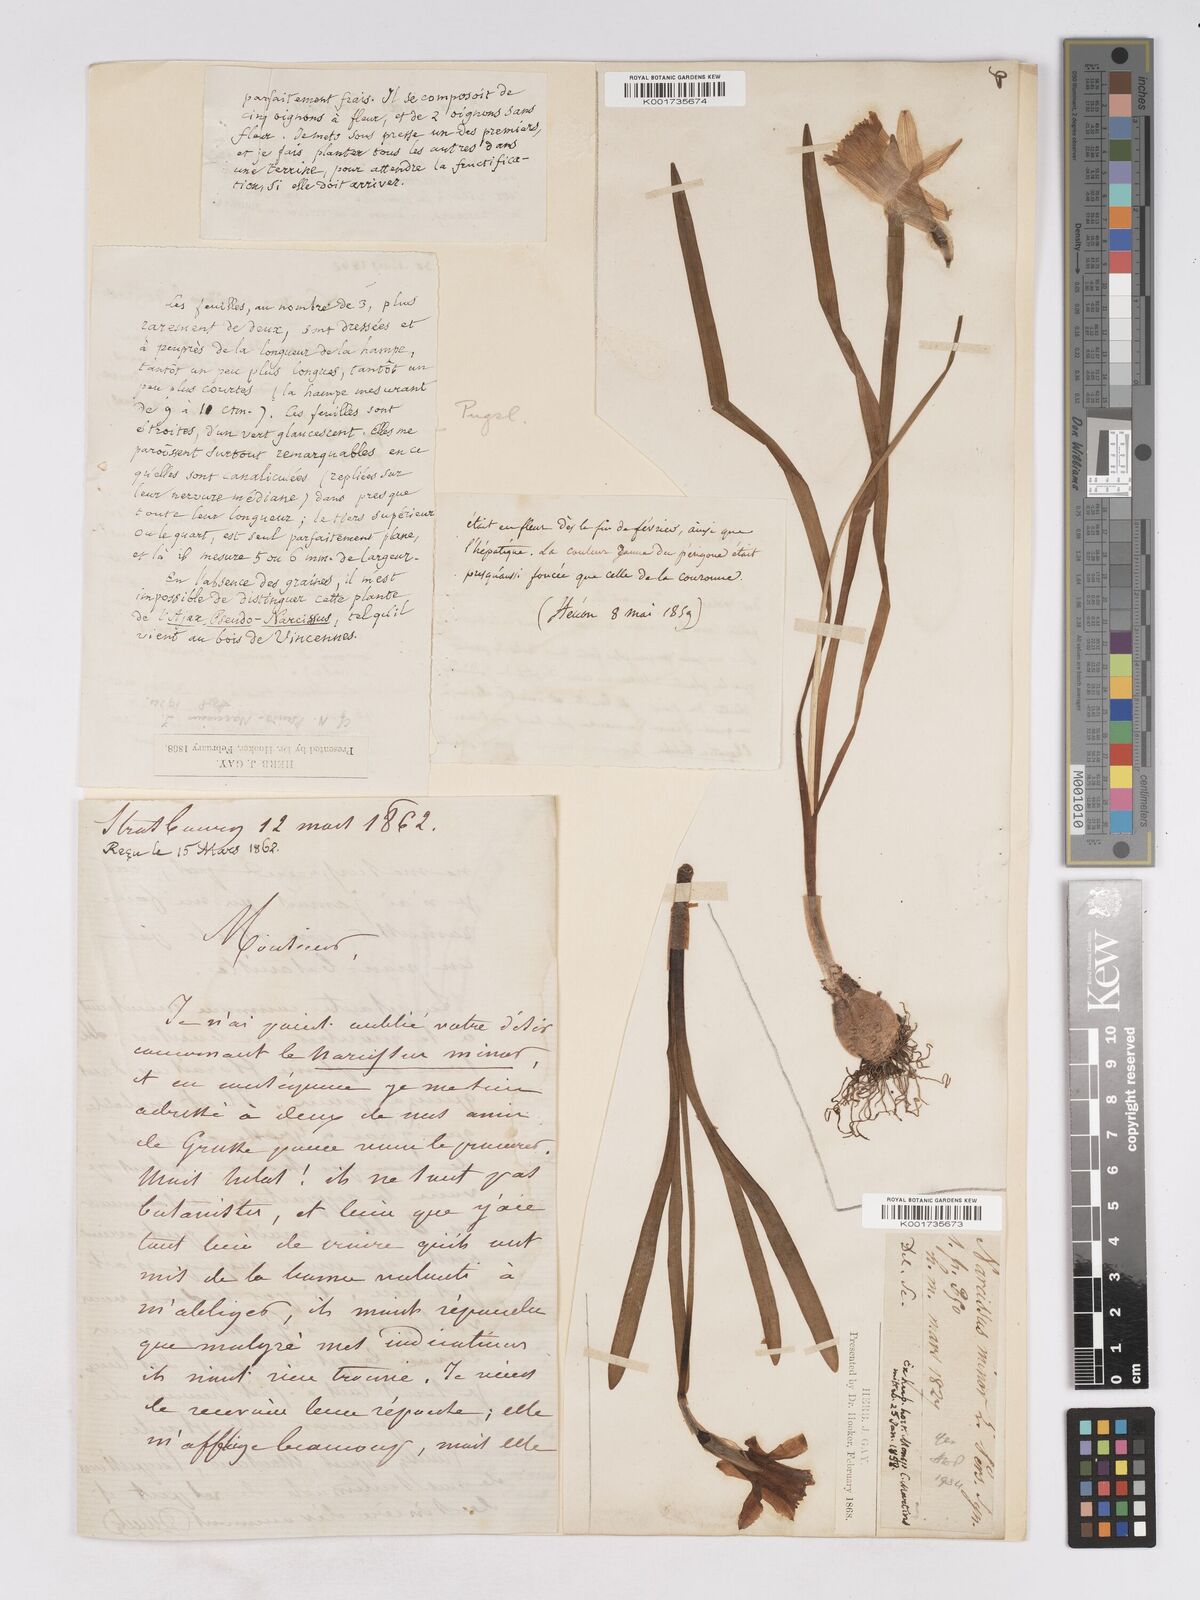 parfaitement frais. Il se composoit de
cinq oignons à fleur, et de 2 oignons sans
fleur. Je mets sous presse un des premiers,
et je fais planter tous les autres dans
une terrine, pour attendre la fructifica-
tion, si elle doit arriver.
Les feuilles, au nombre de 3, plus
rarement de deux, sont dressées et
à peuprès de la longueur de la hampe,
tantôt un peu plus longues, tantôt un
peu plus courtes (la hampe mesurant
de 9 à 10 ctm.). Ces feuilles sont
étroites, d'un vert glaucescent. Elles me
paroissent surtout remarquables en ce
qu'elles sont canaliculées (repliées sur
leur nervure médiane) dans presque
toute leur longueur; le tiers supérieur
ou le quart, est seul parfaitement plane,
et là il mesure 5 ou 6 mm. de largeur.
En l'absence des graines, il m'est
impossible de distinguer cette plante,
de l'Ajax Pseudo-Narcissus, tel qu'il
vient au bois de Vincennes.
HERB. J. GAY.
Presented by Dr. Hooker, February 1868.
Pugel.
était en fleur dès le fin de février, ainsi que
l'hépatique. La couleur jaune du périgone était
presqu'aussi foncée que celle de la couronne.
(Hénon 8 mai 1859)
Strasbourg 12 mars 1862.
Reçu le 15 Mars 1862.
Monsieur,
Je n'ai point oublié votre désir
concernant le Narcissus minor,
et en conséquence je me suis
adressé à deux de nos amis
de pour nous le procurer.
Mais hélas! ils ne sont pas
botanistes, et bien que j'aie
tout lieu de croire qu'ils ont
mis de la bonne volonté à
m'obliger, ils m'ont répondu
que malgré mes indications
ils n'ont rien trouvé. Je viens
de recevoir leur réponse; elle
m'afflige beaucoup, mais elle
ROYAL BOTANIC GARDENS KEW
K001735674
ROYAL BOTANIC GARDENS KEW
K001735673
Narcissus minor L. Pers. Syn.
1. p. 
h. m. mars 1824
Del. Se-
Ex herb. hort. Monsp. C. Martins
mitt. D. 25 Jan. 1858.
1934
HERB. J. GAY.
Presented by Dr. Hooker, February 1868.
Density
Don Williams
M001010
centimeters
Royal Botanic Gardens
Kew
0 1 2 3 4 5 6 7 8 9 10